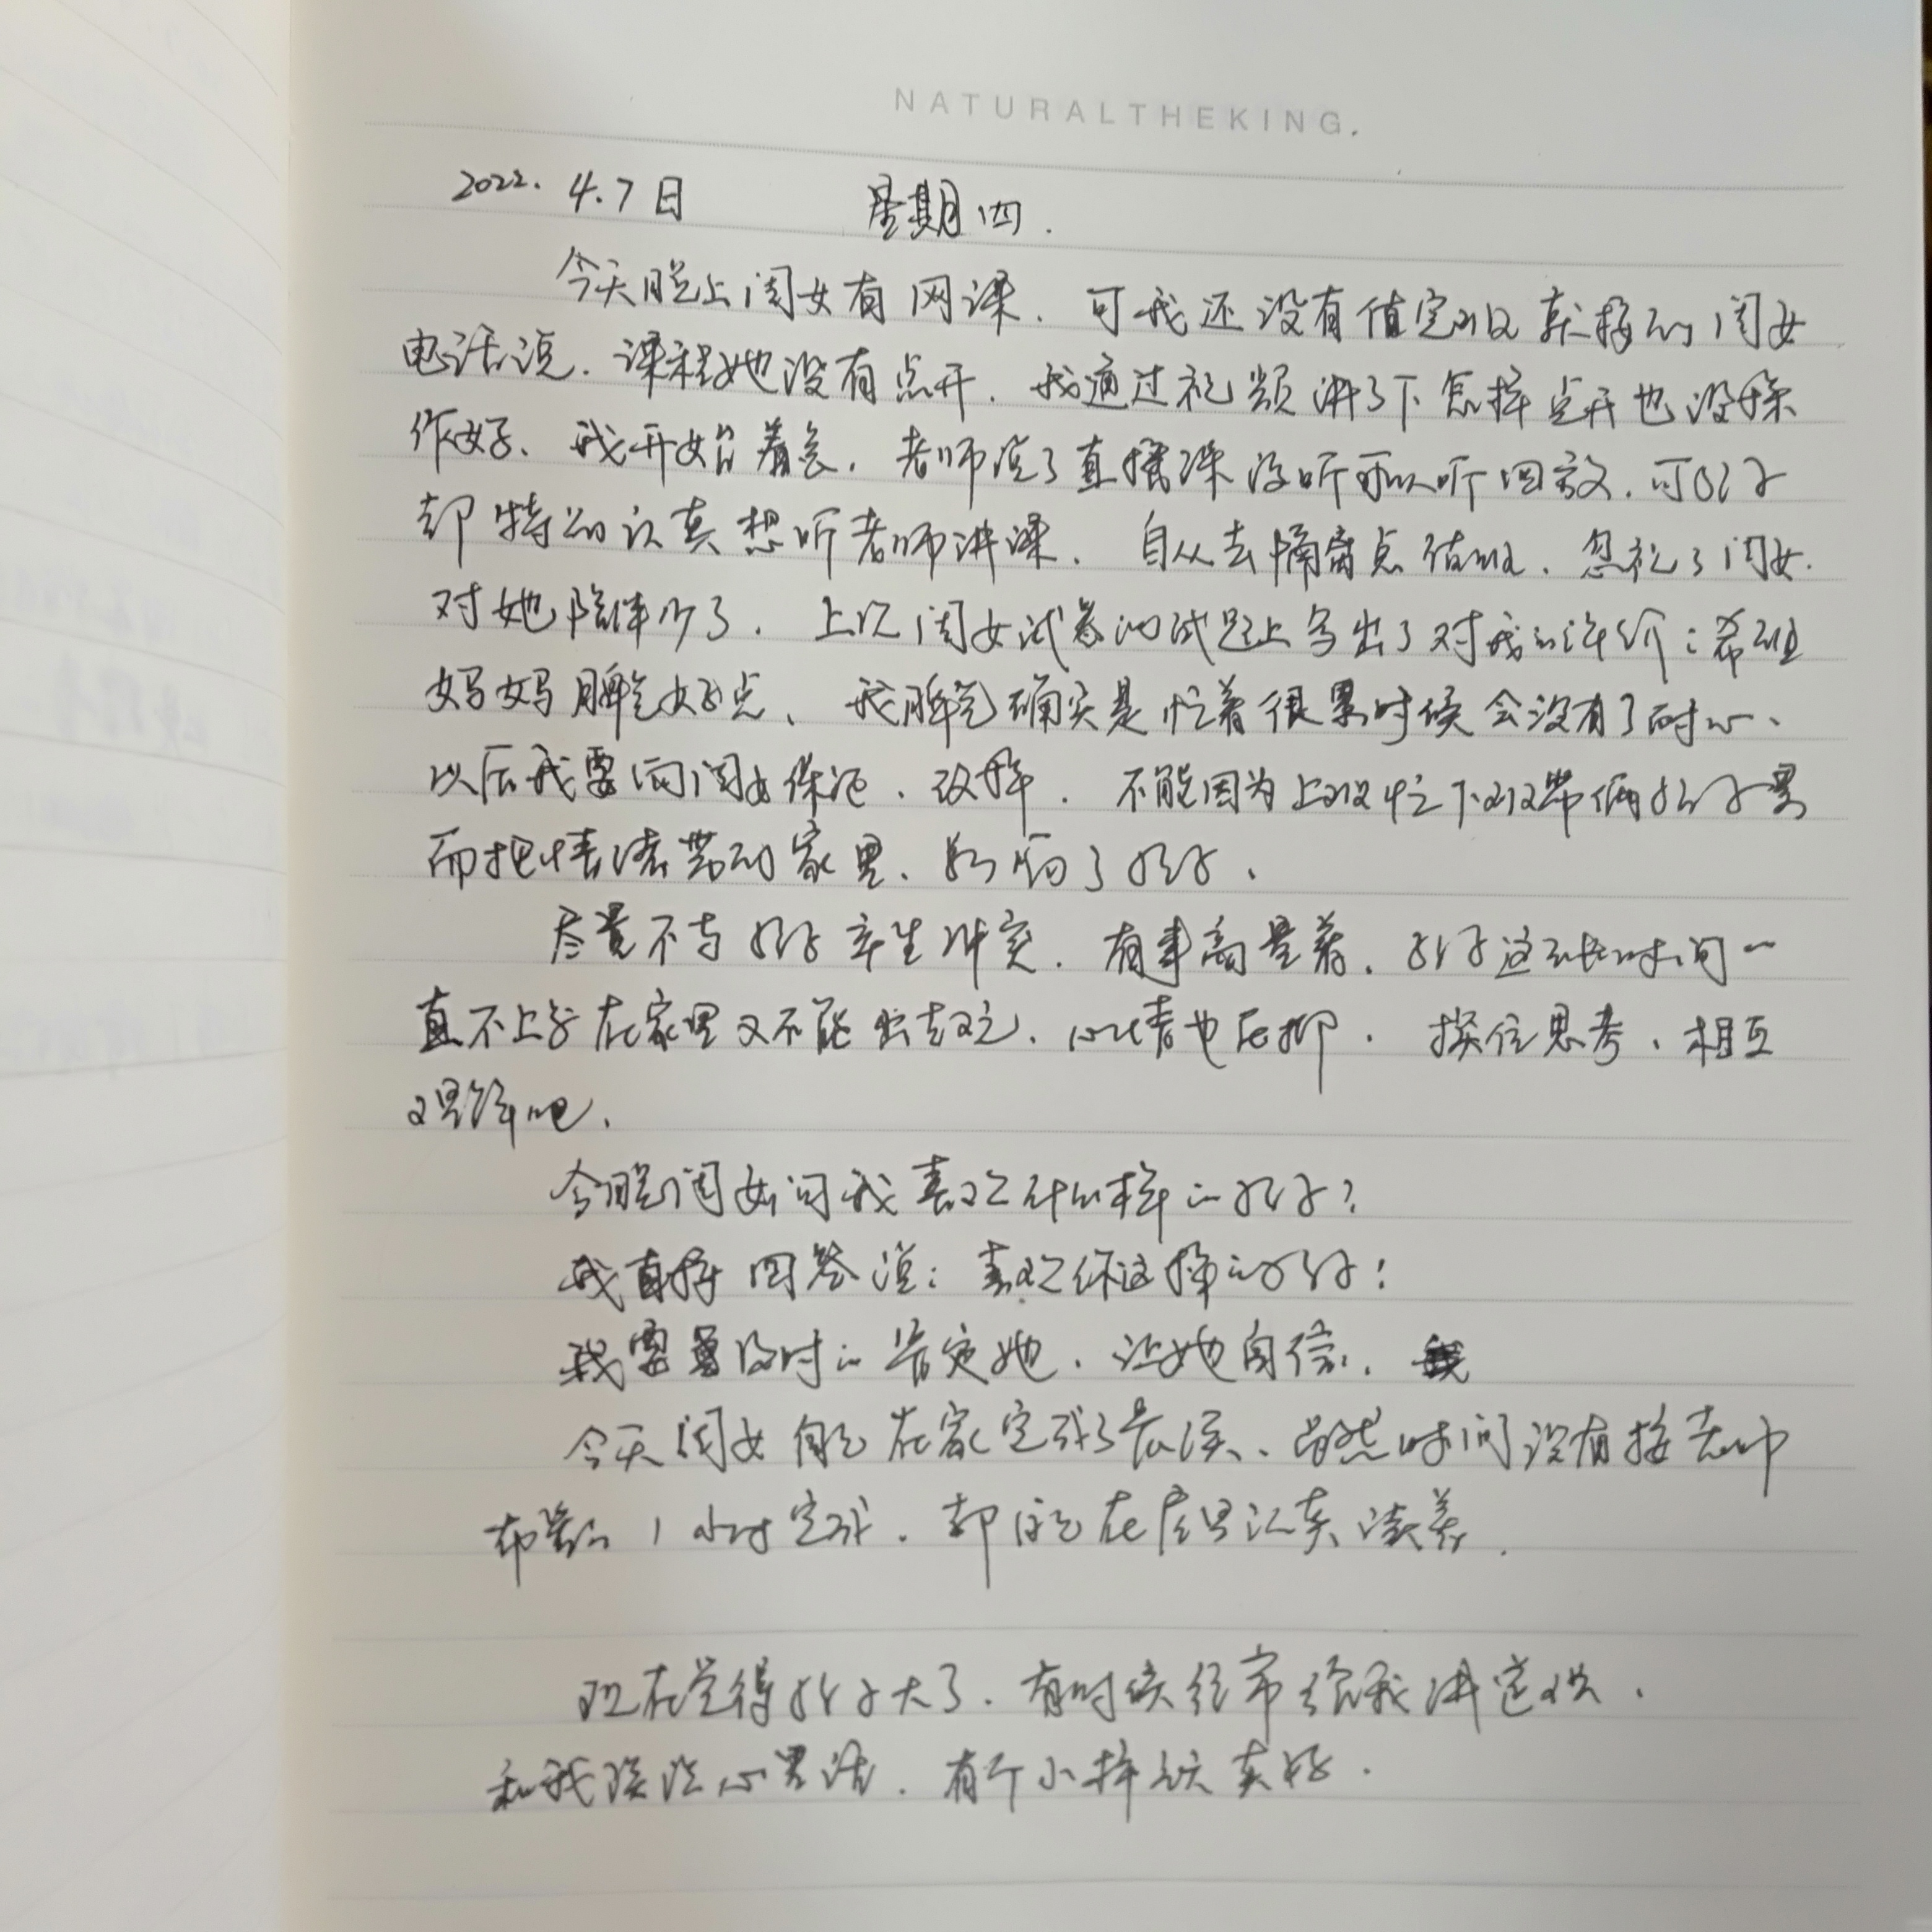 NATURALTHEKING.
2022. 4.7日 星期四.
今天晚上闺女有网课. 可我还没有值完班就接到闺女
电话说. 课程她没有点开. 我通过视频讲了下怎样点开也没操
作好、我开始着急. 老师说了直播课没听可以听回放. 可孩子
却特别认真想听老师讲课. 自从去隔离点值班、忽视了闺女.
对她陪伴少了. 上次闺女试卷的试题上写出了对我的评价：希望
妈妈脾气好点、我脾气确实是忙着很累时候会没有了耐心、
以后我要向闺女保证、改掉. 不能因为上班忙下班带俩孩子累
而把情绪带到家里、影响了孩子.
尽量不与孩子产生冲突. 有事商量着. 孩子这段时间一
直不上学在家里又不能出去玩、心情也压抑. 换位思考、相互
理解吧.
今晚闺女问我喜欢什么样的孩子?
我直接回答说：喜欢你这样的孩子!
我需要及时的肯定她、让她自信.
今天闺女自己在家完成了长溪、虽然时间没有按老师
布置的1小时完成. 却自己在屋里认真读着.
现在觉得孩子大了. 有时候经常给我讲笑话.
和我谈谈心里话. 有个小棉袄真好.